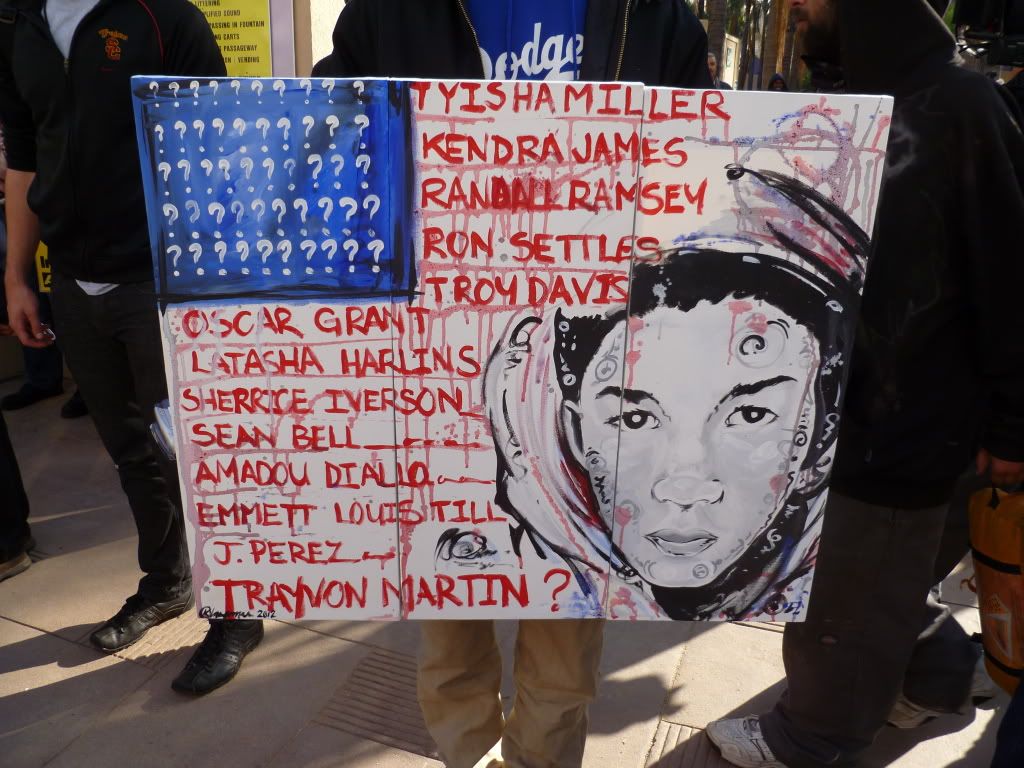 LITTERING
PLIFIED SOUND
PASSING IN FOUNTAIN
NG CARTS
PASSAGEWAY
VENDING
Trojans
SC
Dodge
TYISHA MILLER
KENDRA JAMES
RANDALL RAMSEY
RON SETTLES
TROY DAVIS
OSCAR GRANT
LATASHA HARLINS
SHERRICE IVERSON
SEAN BELL
AMADOU DIALLO
EMMETT LOUIS TILL
J. PEREZ
TRAYVON MARTIN ?
2012